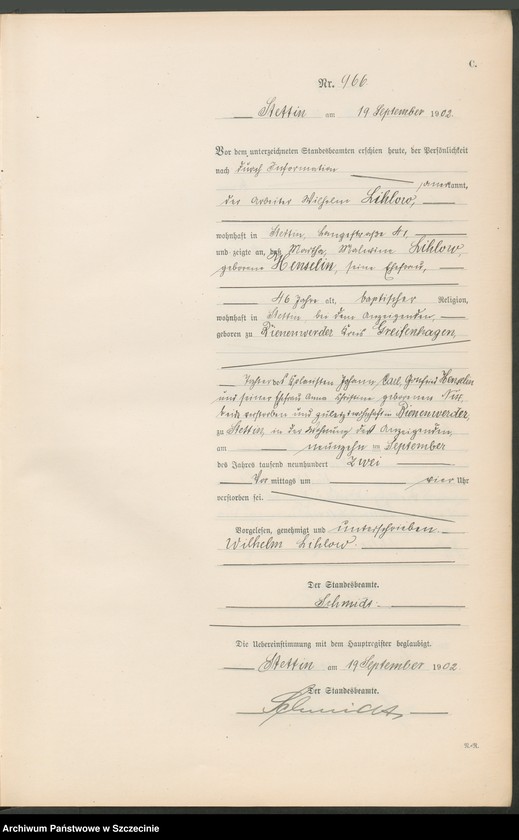 C.
Nr. 966
Stettin am 19 September 1902.
Vor dem unterzeichneten Standesbeamten erschien heute, der Persönlichkeit
nach durch Information
anerkannt,
der Arbeiter Wilhelm Lihlow,
wohnhaft in Stettin, Langestraße 41,
und zeigte an, daß Martha, Malwine Lihlow,
geborene Henselin, seine Ehefrau,
46 Jahre alt, baptischer Religion,
wohnhaft in Stettin bei dem Anzeigenden,
geboren zu Bienenwerder Kreis Greifenhagen,
Tochter des Johann, Carl, Henselin
und seiner Ehefrau Anna Christine geborenen
beide verstorben und zuletzt wohnhaft in Bienenwerder,
zu Stettin, in der Wohnung des Anzeigenden,
am neunzehn ten September
des Jahres tausend neunhundert zwei
Vor mittags um vier Uhr
verstorben sei.
Vorgelesen, genehmigt und unterschrieben
Wilhelm Lihlow.
Der Standesbeamte.
Schmidt.
Die Uebereinstimmung mit dem Hauptregister beglaubigt.
Stettin am 19 September 1902.
Der Standesbeamte.
Schmidt
Archiwum Państwowe w Szczecinie